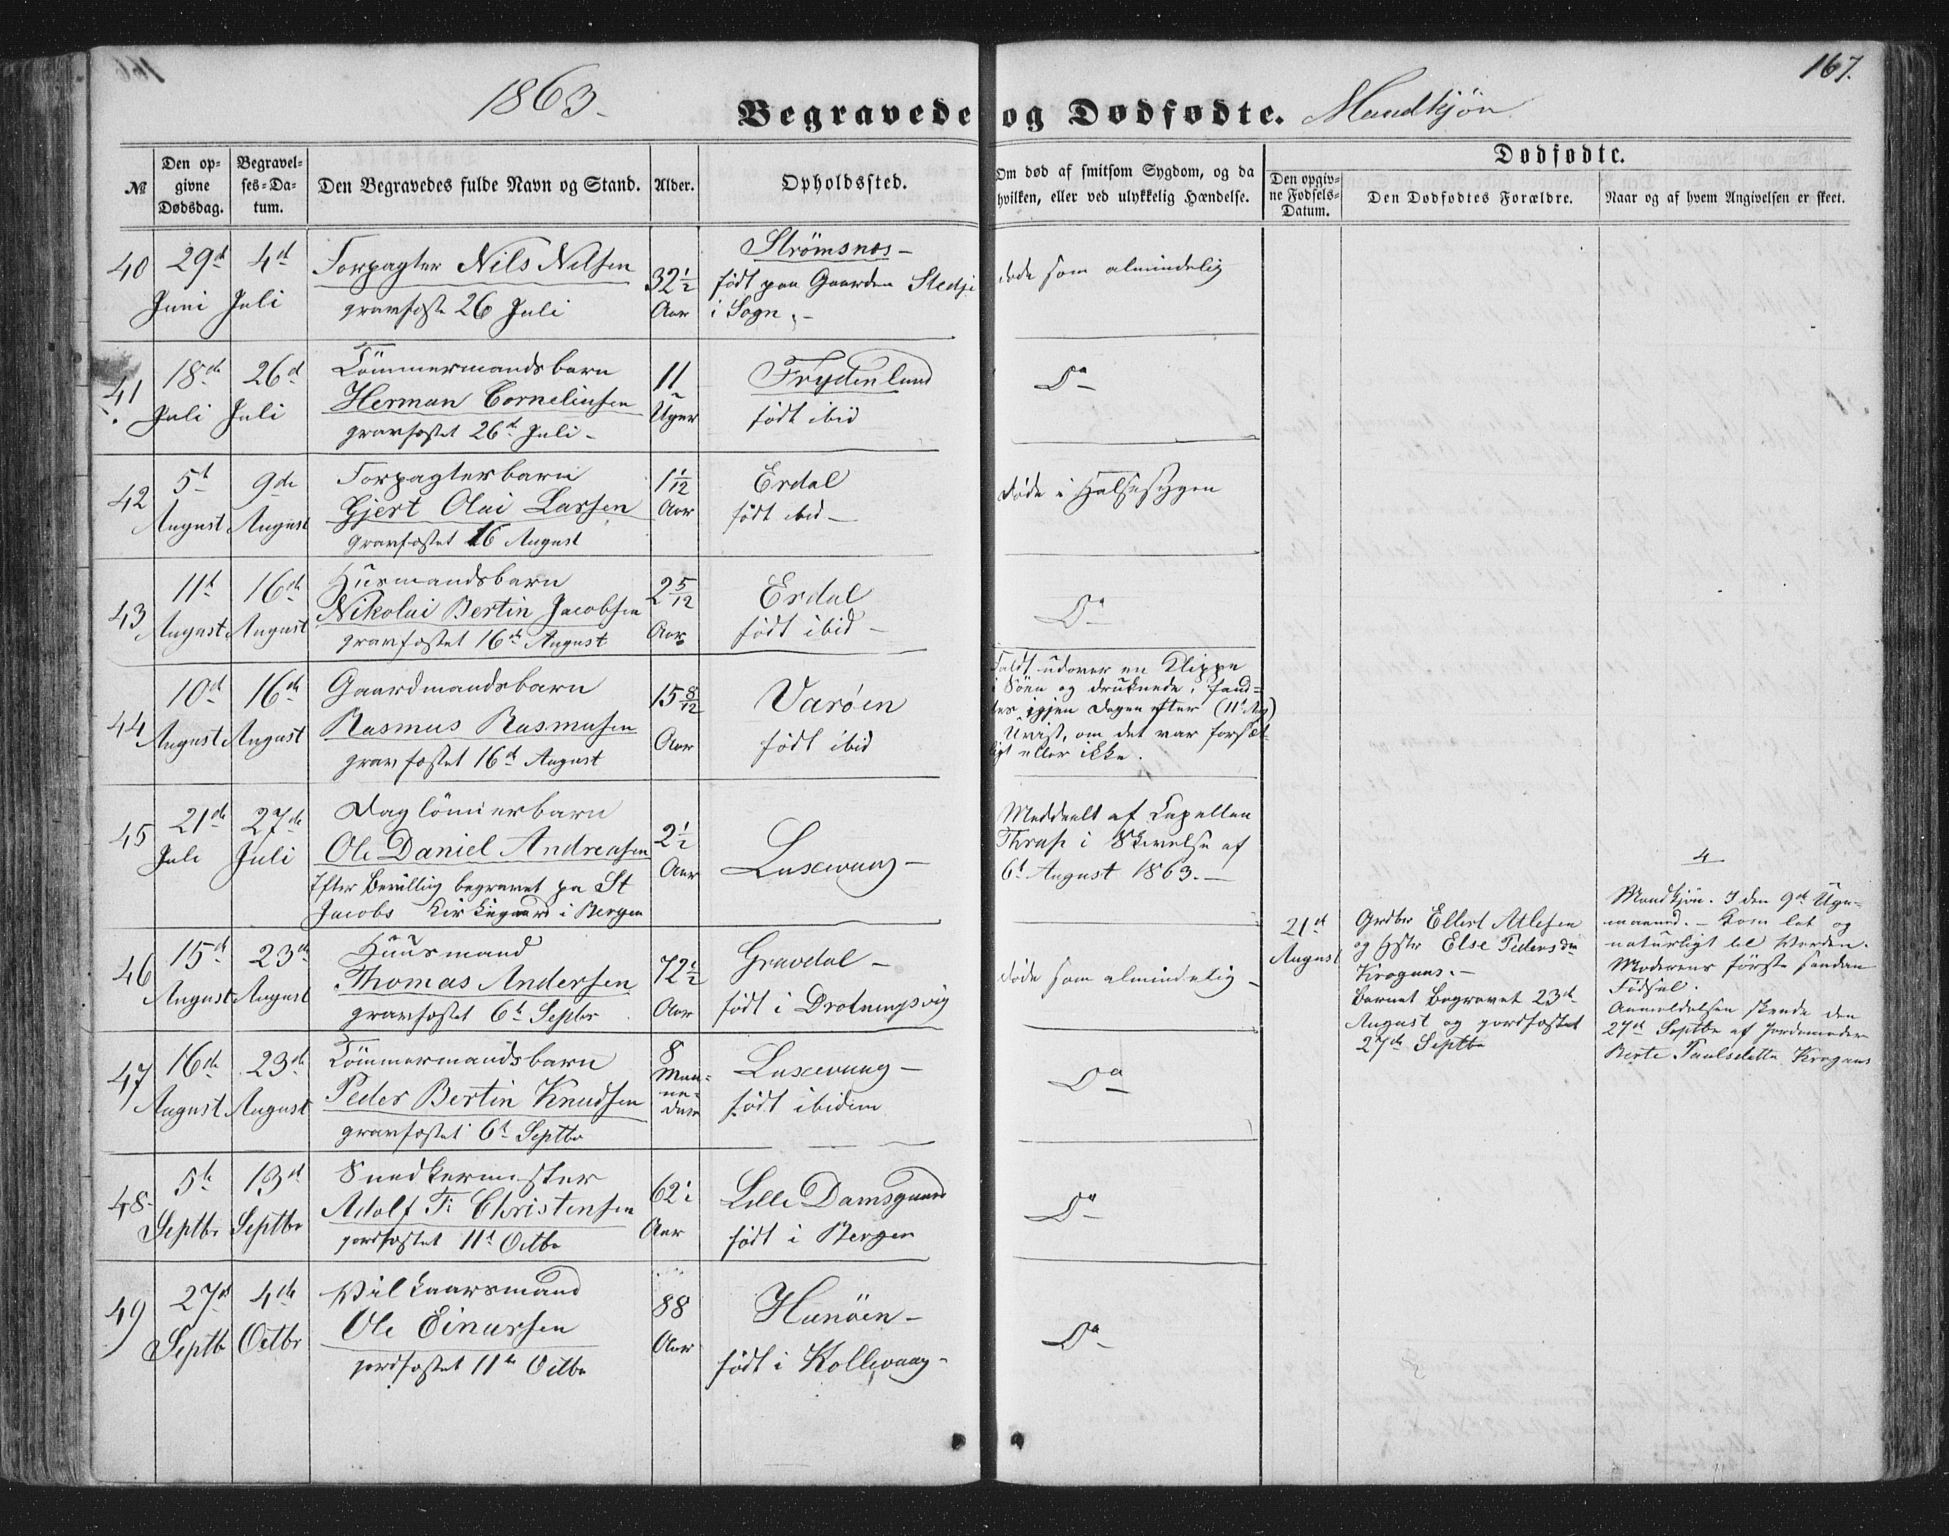 1863.
Begravede og Dødfødte. Mandkjøn.
167.
№
Den opgivne Dødsdag.
Begravelses-Datum.
Den Begravedes fulde Navn og Stand.
Alder.
Opholdssted.
Om død af smitsom Sygdom, og da
hvilken, eller ved ulykkelig Hændelse.
Dødfødte.
Den opgivne Fødsels-Datum.
Den Dødfødtes Forældre.
Naar og af hvem Angivelsen er skeet.
40 29d Juni 4d Juli
Forpagter Nils Nilsen
gravfæste 26 Juli
32½ Aar
Strømsnes -
født paa Gaarden Stedje
i Sogn. -
døde som almindelig
41 18de Juli 26d Juli
Tömmermandsbarn
Herman Corneliusen
gravfæstet 26d Juli -
11 Uger
Frydenlund
født ibid
Do
42 5t August 9de August
Forpagterbarn
Gjert Olai Larsen
Gravfæstet 16 August
1 1/12 Aar
Erdal
født ibid -
døde i Halssygen
43 11t August 16de August
Husmandsbarn
Nikolai Bertin Jacobsen
gravfæstet 16de August
2 5/12 Aar
Erdal
født ibid -
Do
44 10d August 16de August
Gaardmandsbarn
Rasmus Rasmusen
gravfæstet 16d August
15 8/12 Aar
Varøen
født ibid
Faldt udover en Klippe
i Söen og druknede, fand=
tes igjen Dagen efter (11t Aug)
Uvist, om det var forsæt-
ligt eller ikke.
45 21de Juli 27de Juli
Daglönnerbarn
Ole Daniel Andreasen
Efter Bevilling begravet pa St
Jacobs Kirkegaard i Bergen
2½ Aar
Laxevaag -
Meddeelt af Capellan
i Skrivelse af
6t August 1863. -
46 15d August 23de August
Huusmand
Thomas Andersen
gravfæstet 6t Septbr
72½ Aar
Gravdal -
født i Drotningsvig
døde som almindelig -
47 16de August 23de August
Tömmermandsbarn
Peder Bertin Knudsen
gravfæstet 6t Septbr
8 Maaneder
Laxevaag -
født ibidem
Do
48 5te Septbr 13d Septbr
Snedkermester
Adolf F: Christensen
jordfæstet 11t Octbr
62 Aar
Lille Damsgaard
født i Bergen
Do
49 27d Septb 4de Octbr
Vilkaarsmand
Ole Einarsen
jordfæstet 11te Octbr
88 Aar
Hanøen -
født i Kollevaag -
Do
21d August
Grdbr Ellert Atlesen
og Hstr Else Pedersdr
Krogaas. -
Barnet Begravet 23de
August og jordfæstet
27de Septbr
4
Mandkjön. I den 9de
maaned. - Kom let og
naturligt til Verden.
Moderens første
Födsel.
Anmeldelsen skeede den
27de Septbr af Jordemoder
Berte Paulsdatter Krogaas